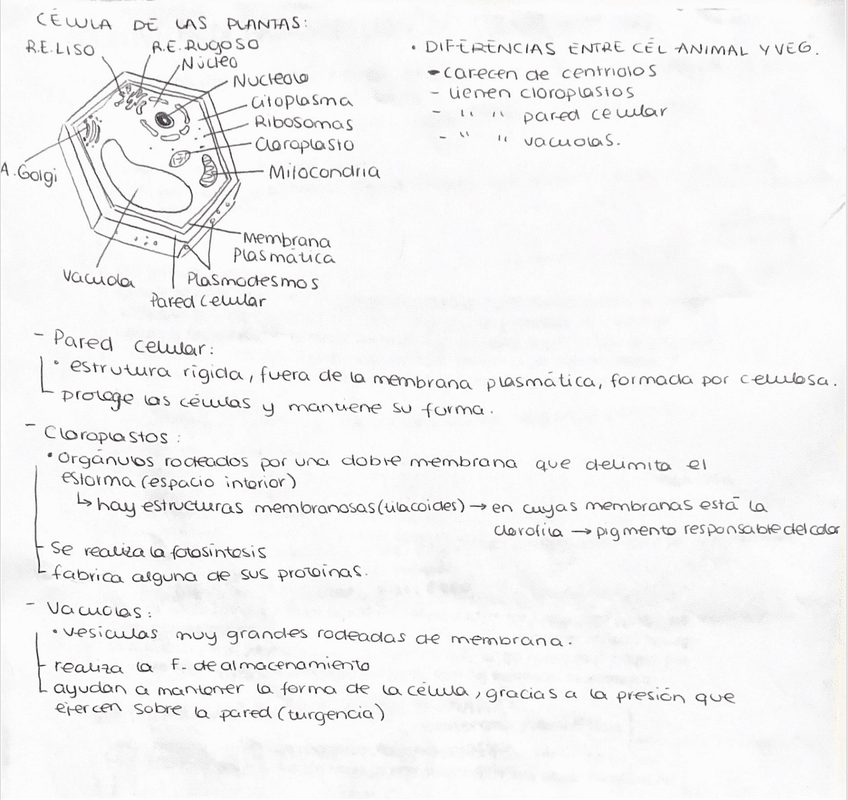 CÉLULA DE LAS PLANTAS:
R.E. LISO
R.E. RUGOSO
Núcleo
Nucleolo
Citoplasma
Ribosomas
Cloroplasto
Mitocondria
A. Golgi
Membrana
Plasmática
Vacuola
Plasmodesmos
Pared celular
• DIFERENCIAS ENTRE CÉL ANIMAL Y VEG.
- carecen de centriolos
- tienen cloroplastos
- " " pared celular
- " " vacuolas.
- Pared celular:
• estrutura rígida, fuera de la membrana plasmática, formada por celulosa.
protege las células y mantiene su forma.
- Cloroplastos:
• Orgánulos rodeados por una doble membrana que delimita el
estorma (espacio interior)
↳ hay estructuras membranosas (tilacoides) → en cuyas membranas está la
clorofila → pigmento responsable del color
se realiza la fotosíntesis
fabrica alguna de sus proteínas.
- Vacuolas:
• vesículas muy grandes rodeadas de membrana.
realiza la f. de almacenamiento
ayudan a mantener la forma de la célula, gracias a la presión que
ejercen sobre la pared (turgencia)